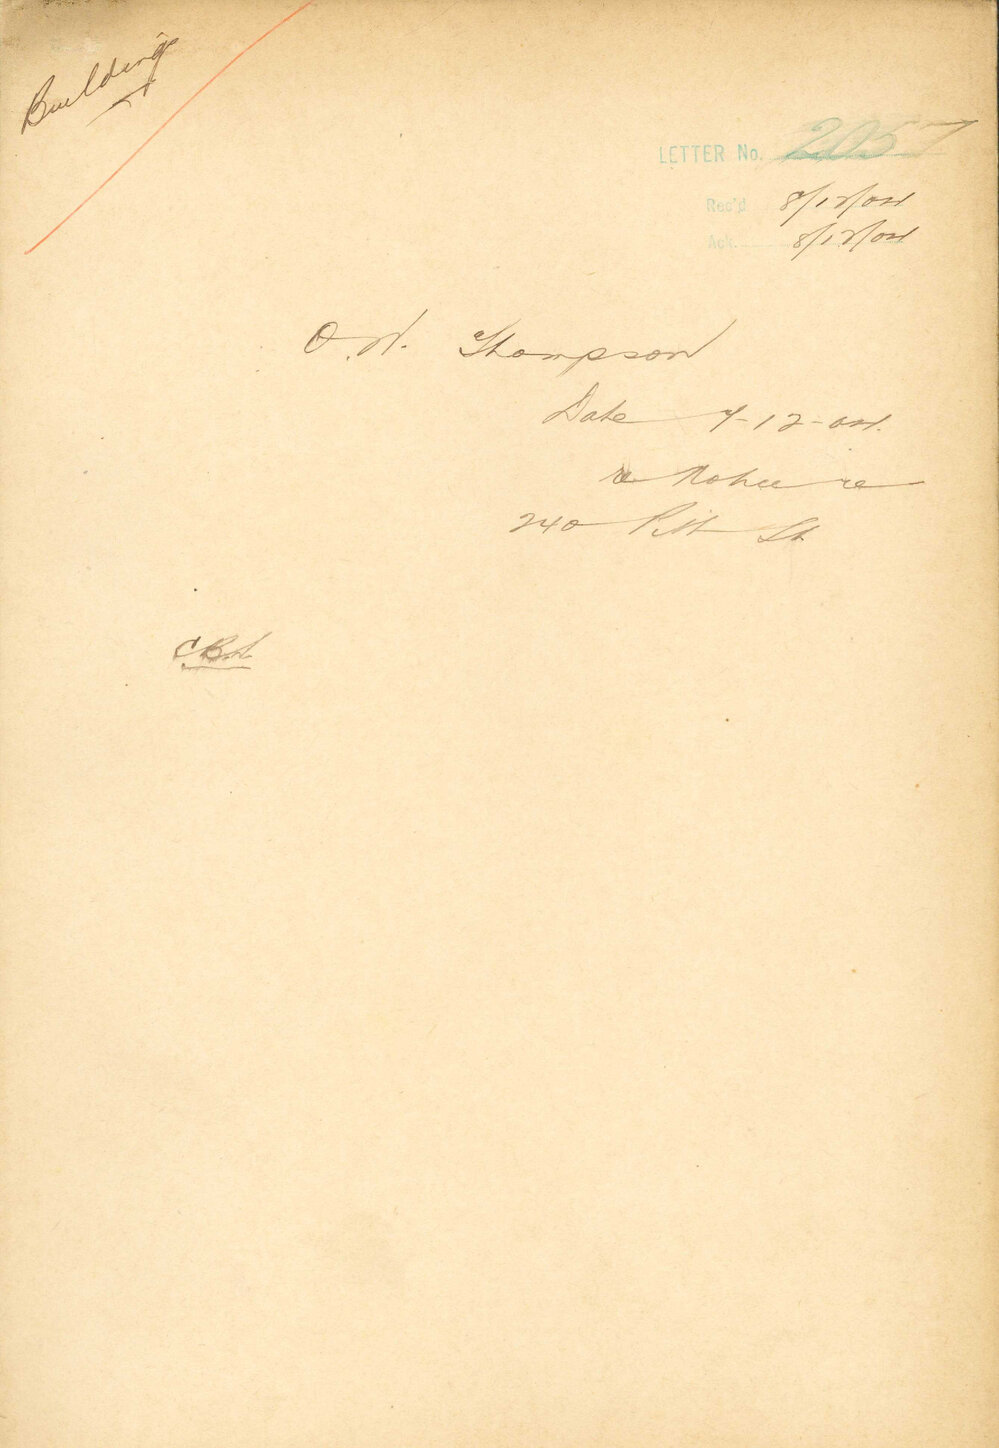 Building
LETTER No. 2057
Rec'd 8/12/04
Ack. 8/12/04
O.W. Thompson
Date 7-12-04.
re Notice re
240 Pitt St